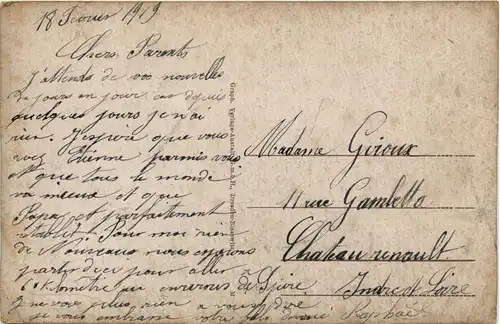 18 Février 1919
Chers Parents
J'attends de vos nouvelles
de jours en jour car depuis
quelques jours je n'ai
rien. J'espère que vous
avez Etienne parmis vous
et que tous le monde
va mieux et que
Papa est parfaitement
rétablit. Pour moi rien
de Nouveaux nous espérons
partir d'ici pour aller
6 kilomètre aux environs de Spire
Je ne vois plus rien a vous dire
je vous embrasse votre fils dévoué Raphaël
Graph. Verlags-Anstalt G.m.b.H., Dresden
Madame Giroux
11 rue Gambetta
Chateaurenault
Indre et Loire